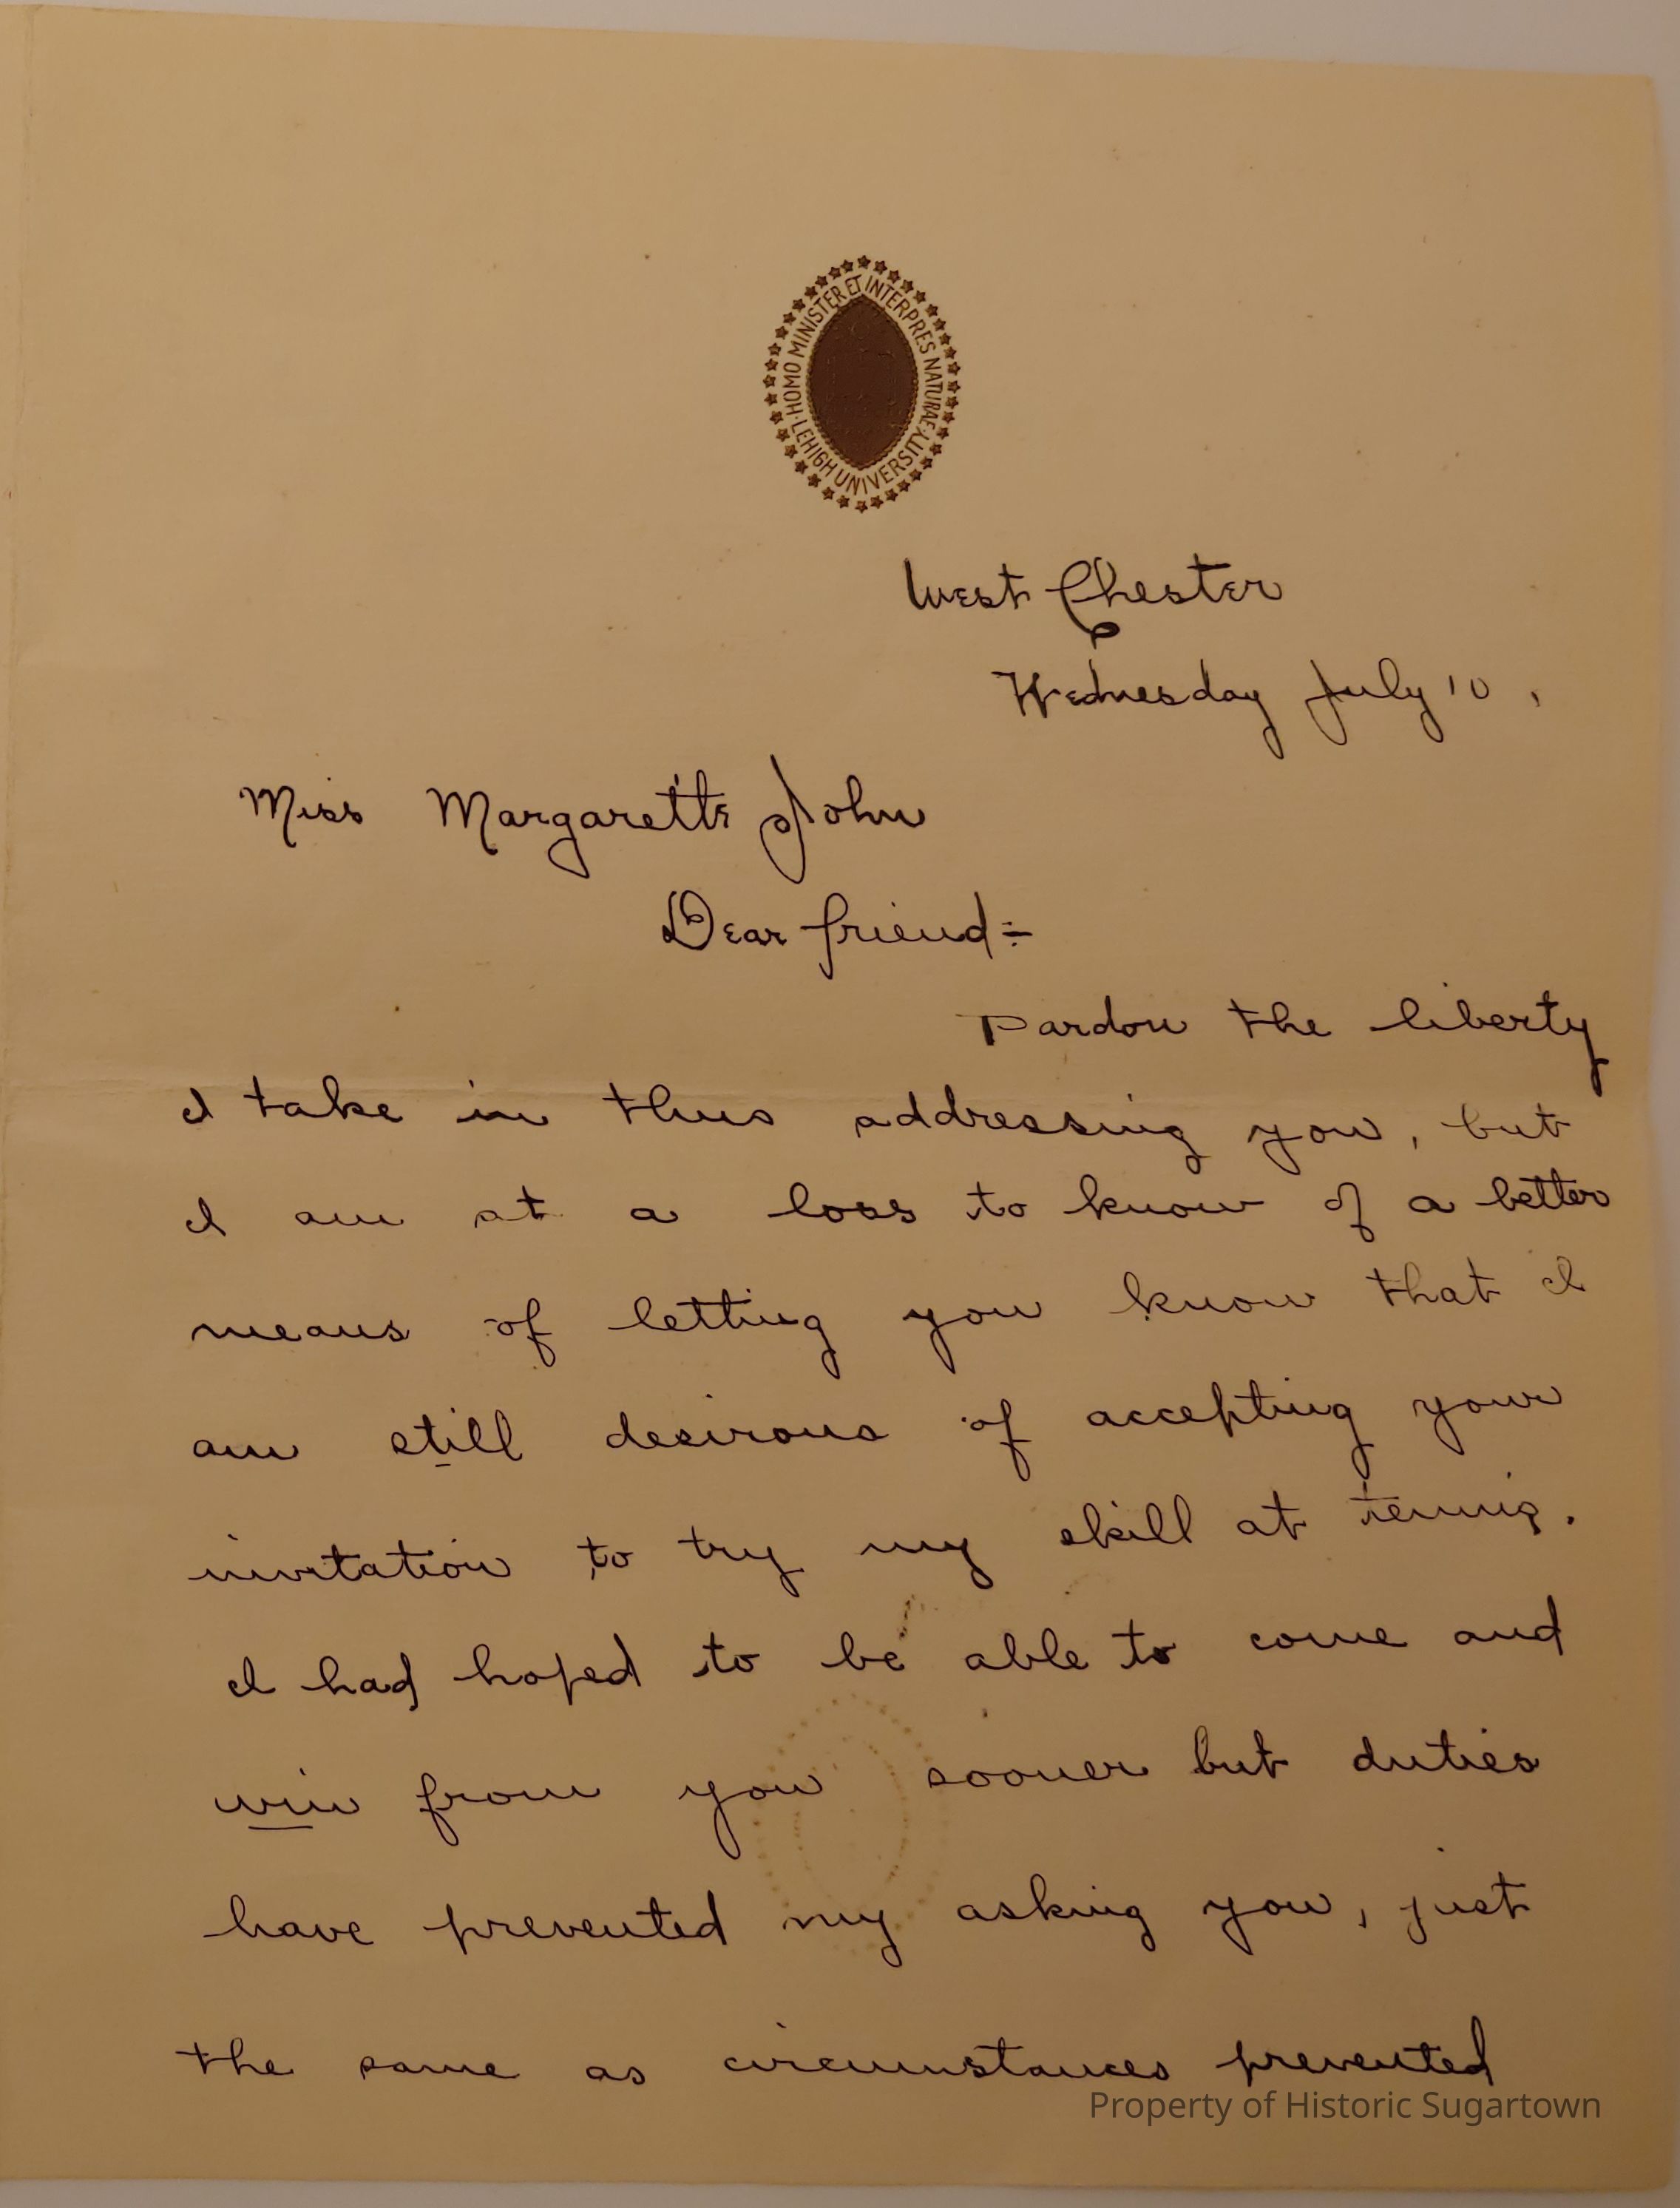 HOMO MINISTER ET INTERPRES NATURAE · LEHIGH UNIVERSITY ·
West Chester
Wednesday July 10,
Miss Margarette John
Dear friend:-
Pardon the liberty
I take in thus addressing you, but
I am at a loss to know of a better
means of letting you know that I
am still desirous of accepting your
invitation to try my skill at tennis.
I had hoped to be able to come and
win from you sooner but duties
have prevented my asking you, just
the same as circumstances prevented
Property of Historic Sugartown